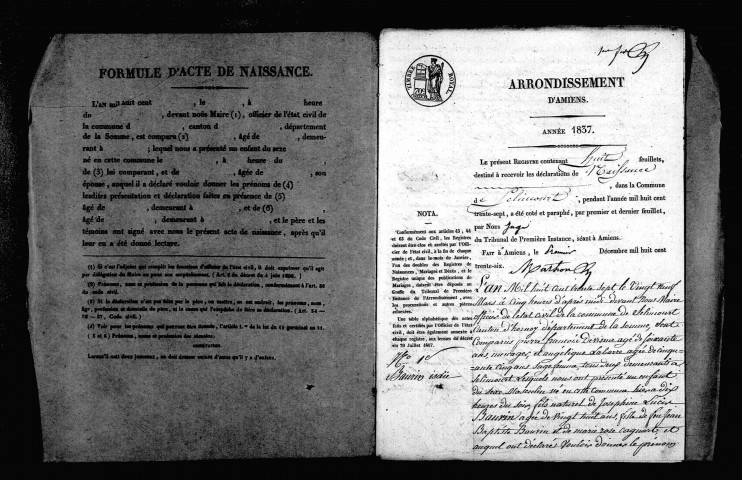 FORMULE D'ACTE DE NAISSANCE.
L'AN mil huit cent , le , à heure
de , devant nous Maire (1), officier de l'état civil de
la commune d , canton d , département
de la Somme, est comparu (2) , âgé de , demeu-
rant à ; lequel nous a présenté un enfant du sexe
né en cette commune le , à heure du
de (3) lui comparant, et de , âgée de , son
épouse, auquel il a déclaré vouloir donner les prénoms de (4)
lesdites présentation et déclaration faites en présence de (5)
âgé de , demeurant à , et de (6)
âgé de , demeurant à , et le père et les
témoins ont signé avec nous le présent acte de naissance, après qu'il
leur en a été donné lecture.
(1) Si c'est l'adjoint qui remplit les fonctions d'officier de l'état civil, il doit exprimer qu'il agit
par délégation du Maire ou pour son empêchement
(2) Prénoms, nom et profession de la personne qui fait la déclaration, conformément à l'art. 56
du code civil.
(3) Si la déclaration n'est pas faite par le père, on mettra, au lieu de
Code civil.)
(4) Voir pour les prénoms qui peuvent être donnés, l'article 1.er de la loi du 11 germinal an 11.
(5 et 6) Prénoms, nom et profession des témoins
TIMBRE ROYAL
ARRONDISSEMENT
D'AMIENS.
ANNÉE 1837.
Le présent REGISTRE contenant huit feuillets,
destiné à recevoir les déclarations de Naissance
, dans la Commune
de Selincourt , pendant l'année mil huit cent
trente-sept, a été coté et paraphé, par premier et dernier feuillet,
par Nous Juge
du Tribunal de Première Instance, séant à Amiens.
FAIT à AMIENS, le premier Décembre mil huit cent
trente-six.
NOTA.
Conformément aux articles 43, 44
et 63 du Code Civil, les Registres
doivent être clos et arrêtés par l'Offi-
cier de l'état civil, à la fin de chaque
année; et, dans le mois de Janvier,
l'un des doubles des Registres de
Naissances, Mariages et Décès, et le
Registre unique des publications de
Mariages, doivent être déposés au
Greffe du Tribunal de Première
Instance de l'Arrondissement, avec
les procurations et autres pièces
annexées.
Une table alphabétique des actes
faits et certifiés par l'Officier de l'état
civil, doit être également annexée à
chaque registre, aux termes du décret
du 20 Juillet 1807.
N.o 1.er
Baurin isidor
L'an Mil huit cent trente sept le Vingt neuf
Mars à Cinq heures d'après midi devant Nous Maire
officier de l'etat civil de la commune de Selincourt
Canton d'hornoy département de la somme, sont
Comparus pierre francois Derisme agé de soixante
ans, menager, et angélique agée de cinqu-
ante cinq ans sage femme, tous deux demeurants à
Selincourt Lesquels nous ont présenté un enfant
du sexe Masculin né en cette commune hier à dix
heures du soir, fils naturel de Josephine Lucie
Baurin agée de vingt huit ans, fille de feu Jean
Baptiste Baurin et de marie rose cagnart, et
auquel ont déclaré vouloir donner le prénom